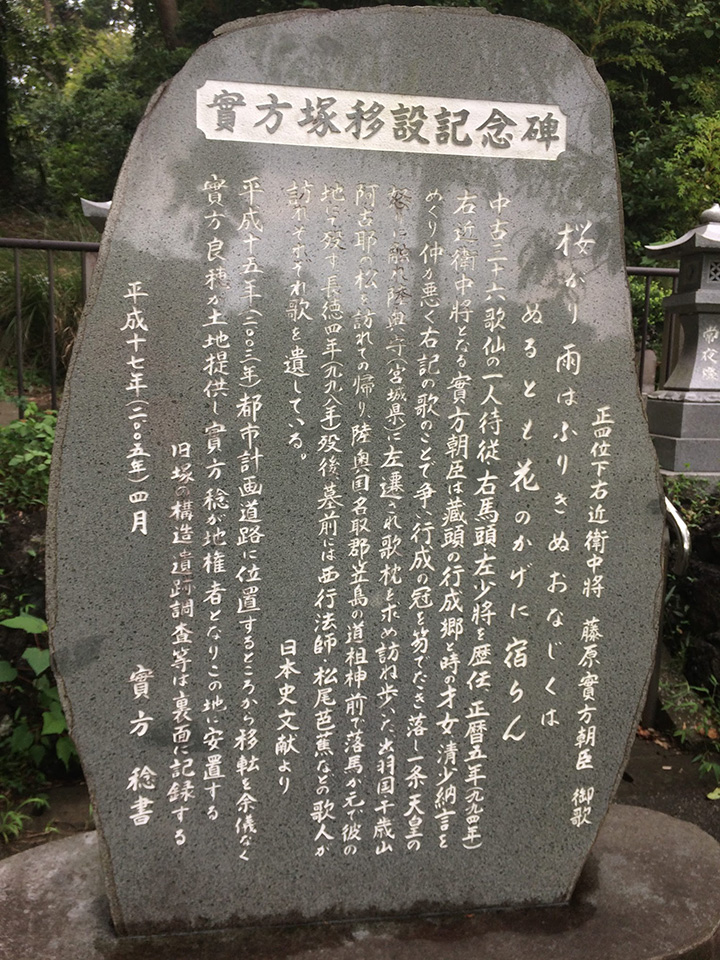 實方塚移設記念碑
正四位下右近衛中将　藤原實方朝臣　御歌
桜かり　雨はふりきぬおなじくは
ぬるとも花のかげに宿らん
中古三十六歌仙の一人待従・右馬頭・左少将を歴任、正暦五年(九九四年)
右近衛中将となる實方朝臣は蔵頭の行成郷と時の才女清少納言を
めぐり仲が悪く右記の歌のことで争い行成の冠を笏でたたき落し一条天皇の
怒りに触れ陸奥守(宮城県)に左遷され歌枕を求め訪ね歩いた出羽国千歳山
阿古耶の松を訪れての帰り、陸奥国名取郡笠島の道祖神前で落馬が元で彼の
地にて歿す長徳四年(九九八年)歿後、墓前には西行法師・松尾芭蕉などの歌人が
訪れそれぞれ歌を遺している。
日本史文献より
平成十五年(二〇〇三年)都市計画道路に位置するところから移転を余儀なく
實方良穂が土地提供し實方稔が地権者となりこの地に安置する
旧塚の構造・遺跡調査等は裏面に記録する
平成十七年(二〇〇五年)四月
實方　稔書
常夜燈